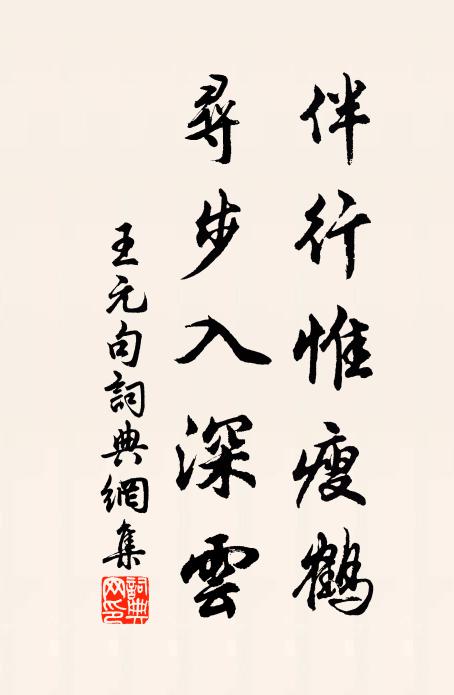 伴行惟瘦鶴
尋步入深雲
王元句詞典網集